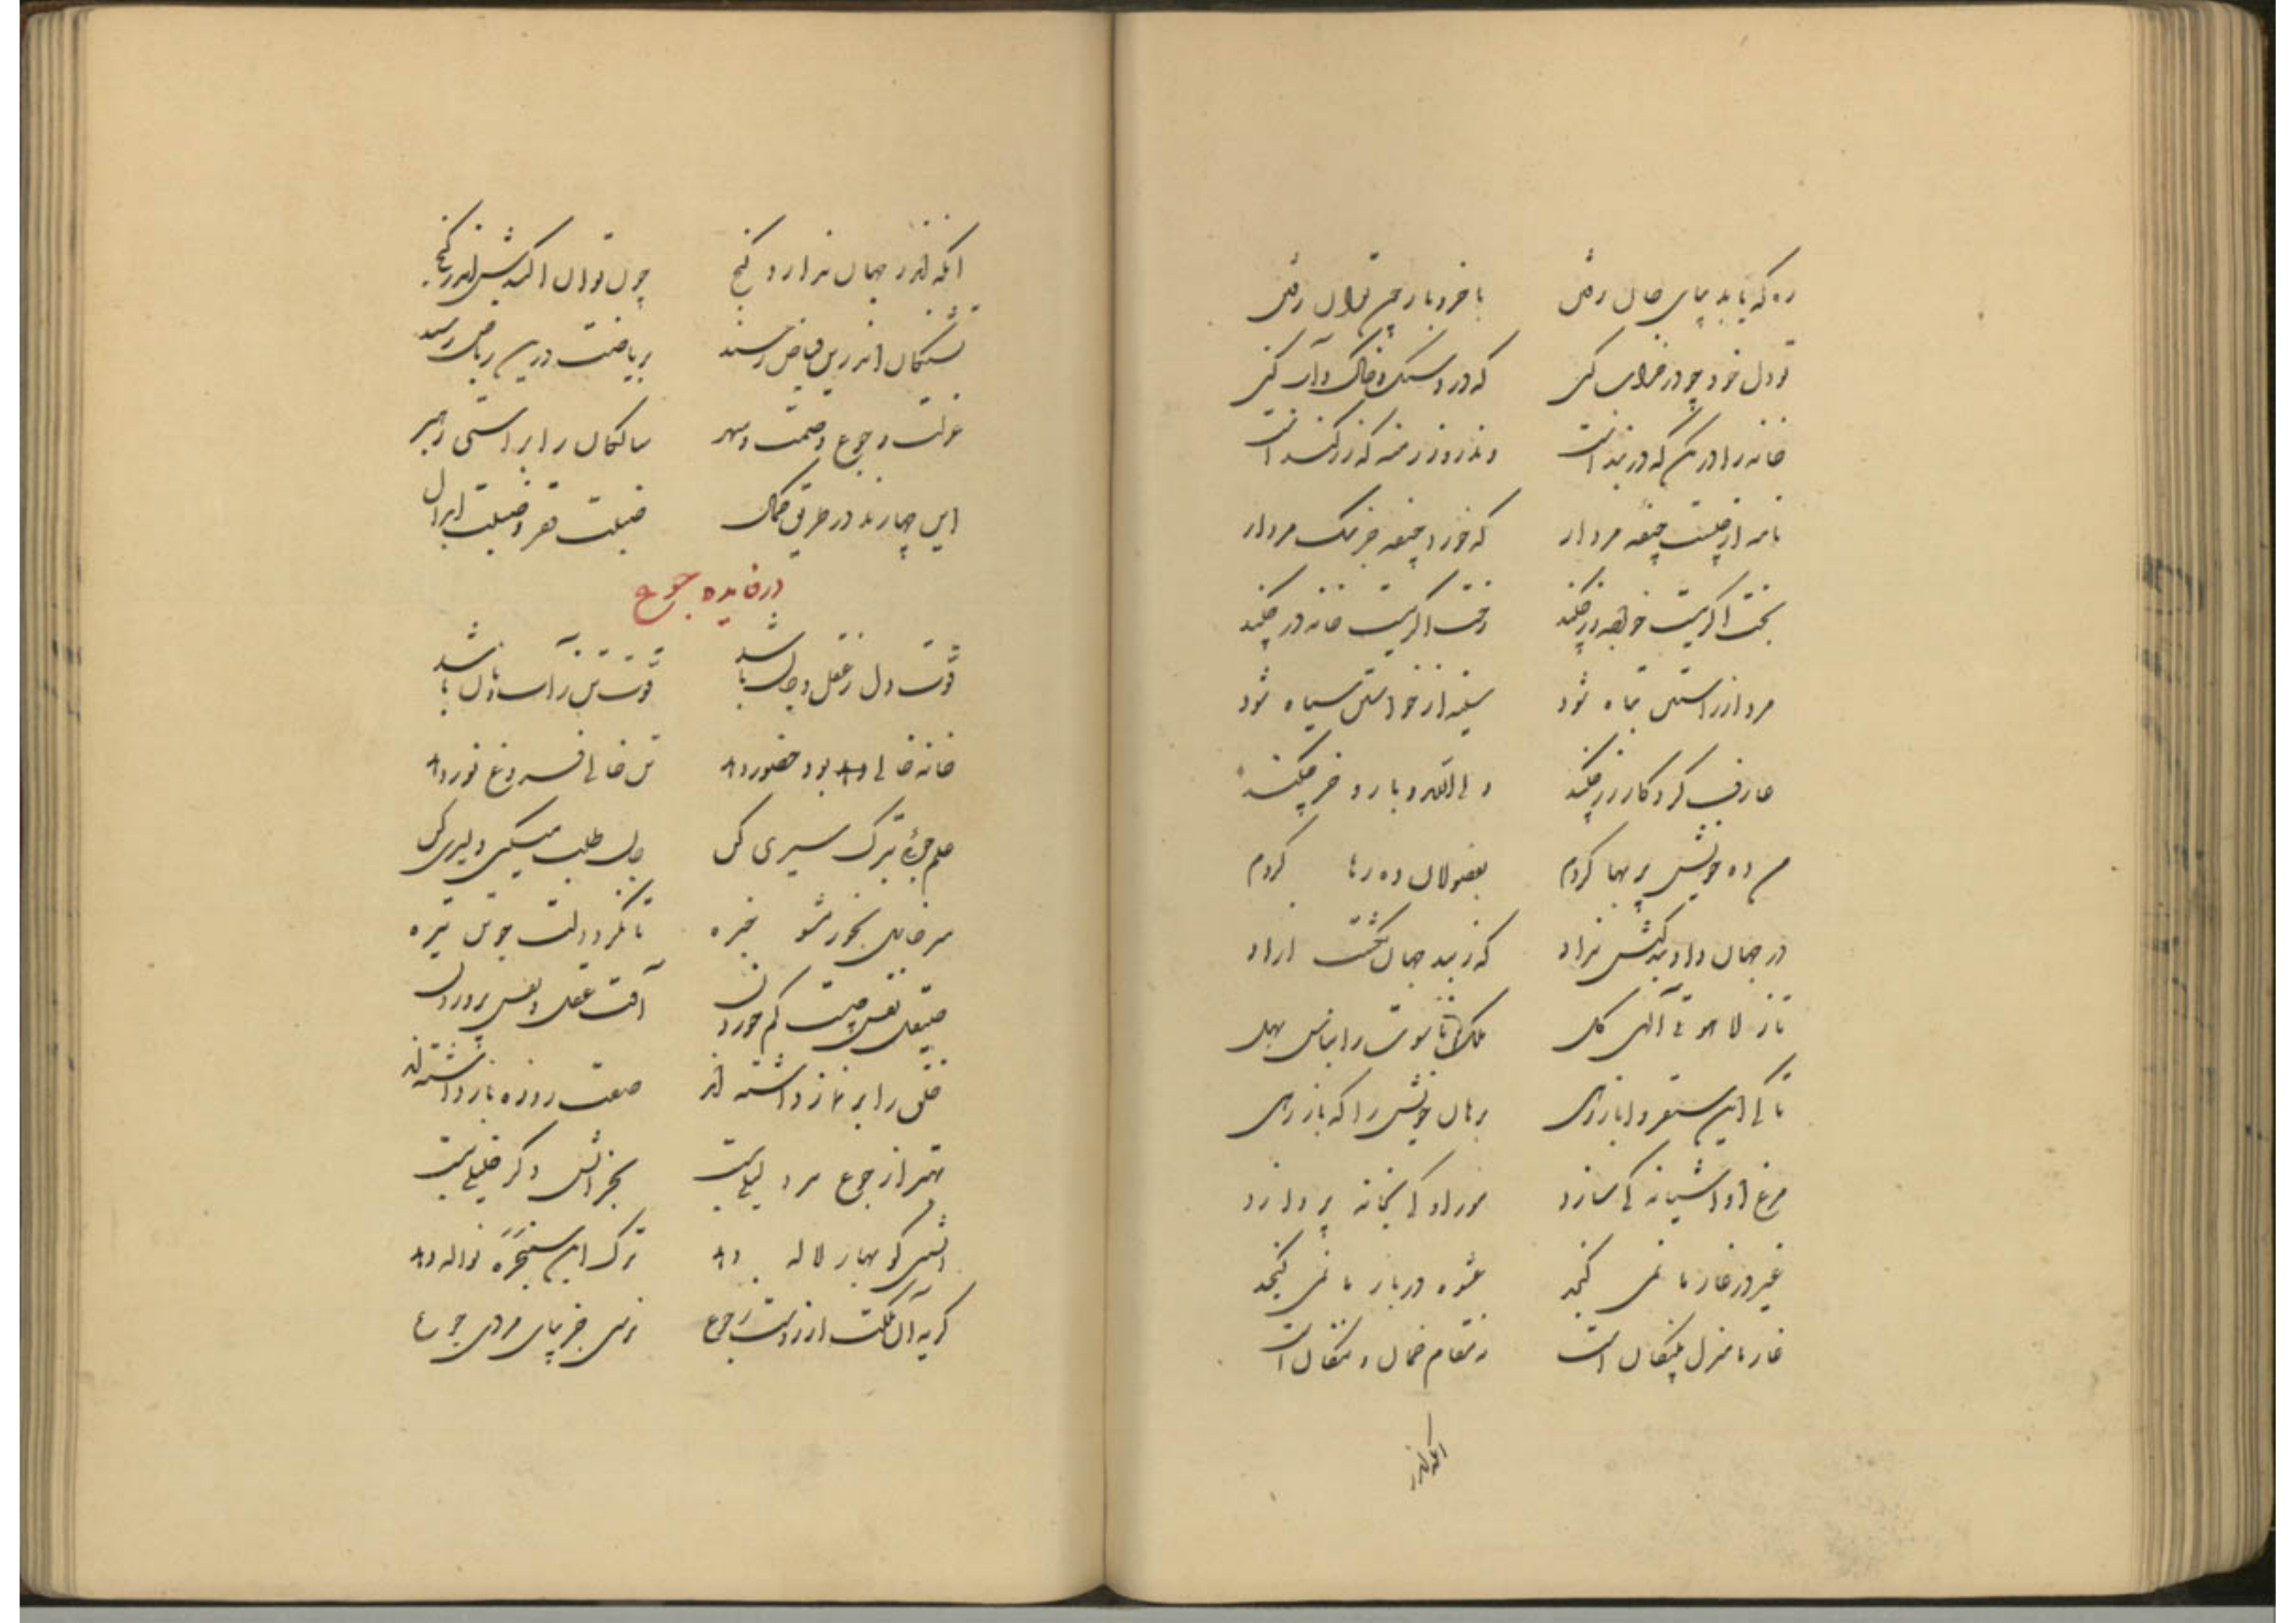 ره که باید بپای جان رفتن با خر و بار چون توان رفتن
تو دل خود چو در خراب کنی که در و سنگ و خاک و آب کنی
خانه را در مکن که در بند است
نامه از چیست جیفهٔ مردار که خورد جیفه جز سگ مردار
بخت اگر نیست خواجه زر چکند رخت اگر نیست خانه در چکند
مرد از راستی تباه شود سینه از خواستن سیاه شود
عارف کردگار زر چکند ولی الله و بار و خر چکند
من ده خویش پر بها کردم بفضولان ده رها کردم
در جهان داد بندگیش نداد که ز بند جهان نگشت ازاد
تاز لاهوتی آلهی کل ملک ناسوت را بناس بهل
تا کی این سقف را بارزی برهان خویش را که بازرهی
مرغ او اشیانه کی سازد مور او کی بخانه پردازد
غیر در غار ما نمی گنجد عشوه در بار ما نمی گنجد
غار ما منزل پلنگان است نه مقام خسان و ننگان است
انکه اندر
انکه اندر جهان ندارد گنج چون توان اکندیش اندر گنج
تشنگان اندرین حیاض رسند بریاضت درین ریاض رسند
عزلت و جوع و صمت و سهر سالکان را براستی رهبر
این چهارند در طریق کمال فضیلت فقر و فضیلت ابدال
در فایده جوع
قوت دل ز عقل و جان باشد قوت تن ز آب و نان باشد
خانه خالی دهد بود حضور دهد تن خالی فروغ نور دهد
علم جوئی بترک سیری کن جان طلب میکنی دلیری کن
سر خالی بخور مشو خیره تا نگردد دلت چو تن تیره
صیقل نفس چیست کم خوردن آفت عقل و نفس پروردن
خلق را بر نماز داشته اند صفت روزه باز داشته اند
بهتر از جوع مرد لیلی نیست بجز اتش دگر خلیلی نیست
اتشی کو بهار لاله دهد ترک این سفره نواله دهد
گر به آن مملکت ارزوست رجوع نرسی جز بپای مردی جوع